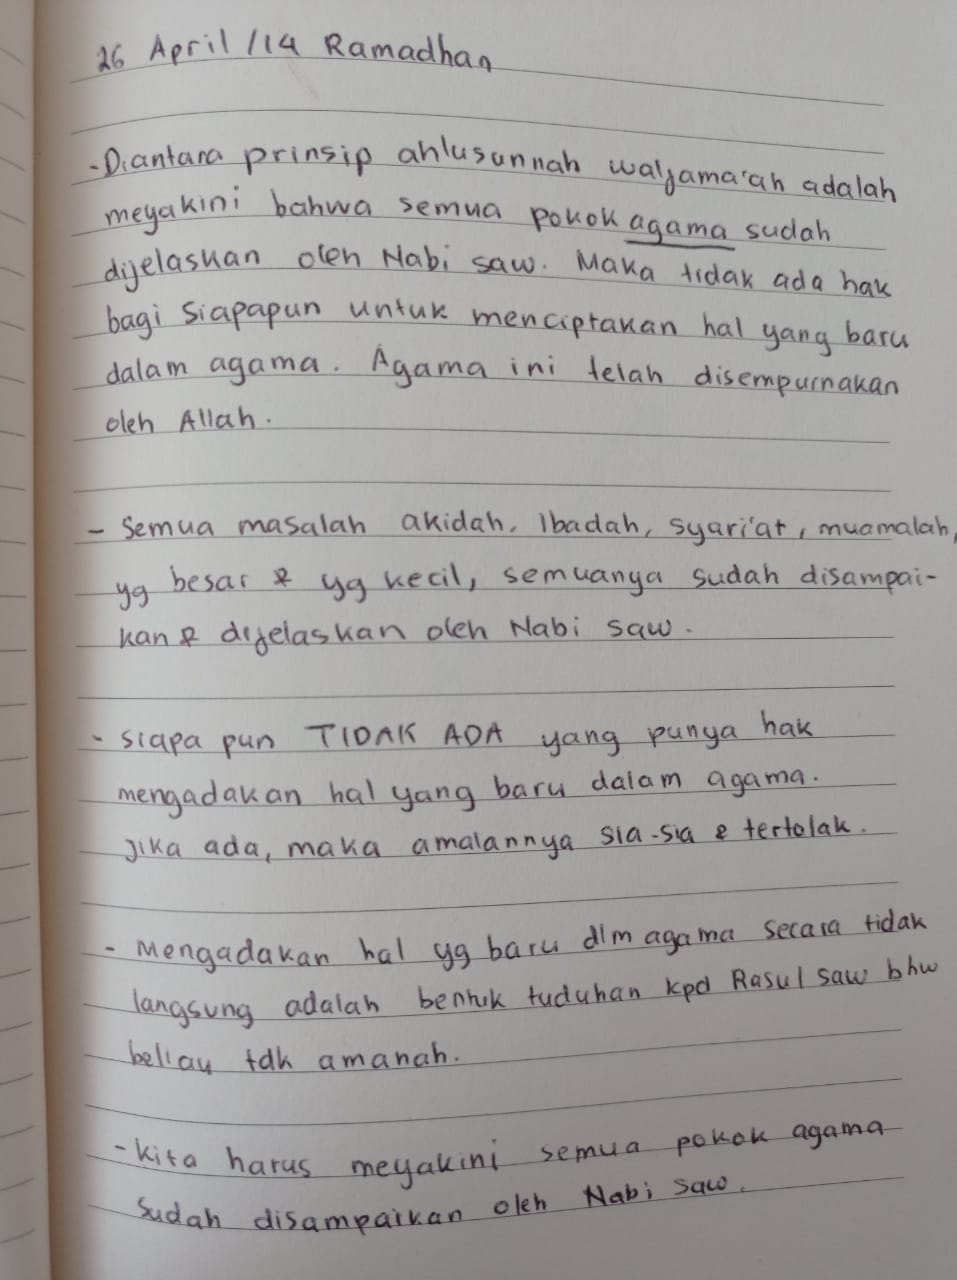 26 April / 14 Ramadhan
- Diantara prinsip ahlusunnah waljama'ah adalah
meyakini bahwa semua pokok agama sudah
dijelaskan oleh Nabi saw. Maka tidak ada hak
bagi siapapun untuk menciptakan hal yang baru
dalam agama. Agama ini telah disempurnakan
oleh Allah.
- Semua masalah akidah, ibadah, syari'at, muamalah,
yg besar & yg kecil, semuanya sudah disampai-
kan & dijelaskan oleh Nabi saw.
- siapa pun TIDAK ADA yang punya hak
mengadakan hal yang baru dalam agama.
Jika ada, maka amalannya sia-sia & tertolak.
- Mengadakan hal yg baru dlm agama secara tidak
langsung adalah bentuk tuduhan kpd Rasul saw bhw
beliau tdk amanah.
- Kita harus meyakini semua pokok agama
sudah disampaikan oleh Nabi saw.